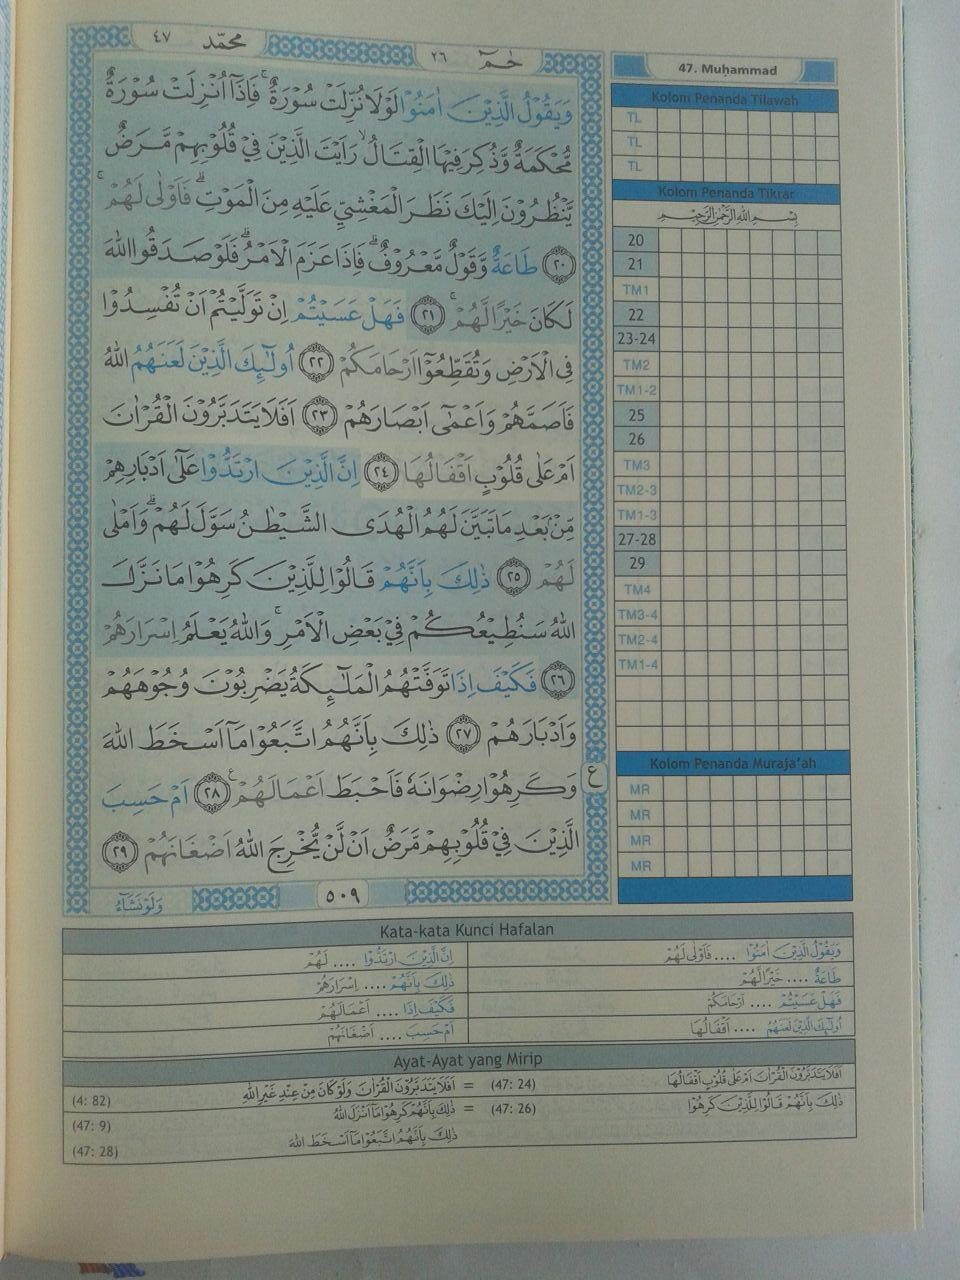 محمّد ٤٧
حٰمۤ ٢٦
وَيَقُوْلُ الَّذِيْنَ اٰمَنُوْا لَوْلَا نُزِّلَتْ سُوْرَةٌ ۚ فَاِذَآ اُنْزِلَتْ سُوْرَةٌ
مُّحْكَمَةٌ وَّذُكِرَ فِيْهَا الْقِتَالُ ۙ رَاَيْتَ الَّذِيْنَ فِيْ قُلُوْبِهِمْ مَّرَضٌ
يَّنْظُرُوْنَ اِلَيْكَ نَظَرَ الْمَغْشِيِّ عَلَيْهِ مِنَ الْمَوْتِ ۗ فَاَوْلٰى لَهُمْ ۚ
٢٠ طَاعَةٌ وَّقَوْلٌ مَّعْرُوْفٌ ۗ فَاِذَا عَزَمَ الْاَمْرُ ۗ فَلَوْ صَدَقُوا اللّٰهَ
لَكَانَ خَيْرًا لَّهُمْ ۚ ٢١ فَهَلْ عَسَيْتُمْ اِنْ تَوَلَّيْتُمْ اَنْ تُفْسِدُوْا
فِى الْاَرْضِ وَتُقَطِّعُوْٓا اَرْحَامَكُمْ ٢٢ اُولٰۤىِٕكَ الَّذِيْنَ لَعَنَهُمُ اللّٰهُ
فَاَصَمَّهُمْ وَاَعْمٰٓى اَبْصَارَهُمْ ٢٣ اَفَلَا يَتَدَبَّرُوْنَ الْقُرْاٰنَ
اَمْ عَلٰى قُلُوْبٍ اَقْفَالُهَا ٢٤ اِنَّ الَّذِيْنَ ارْتَدُّوْا عَلٰٓى اَدْبَارِهِمْ
مِّنْۢ بَعْدِ مَا تَبَيَّنَ لَهُمُ الْهُدَى الشَّيْطٰنُ سَوَّلَ لَهُمْ ۗ وَاَمْلٰى
لَهُمْ ٢٥ ذٰلِكَ بِاَنَّهُمْ قَالُوْا لِلَّذِيْنَ كَرِهُوْا مَا نَزَّلَ
اللّٰهُ سَنُطِيْعُكُمْ فِيْ بَعْضِ الْاَمْرِ ۚ وَاللّٰهُ يَعْلَمُ اِسْرَارَهُمْ
٢٦ فَكَيْفَ اِذَا تَوَفَّتْهُمُ الْمَلٰۤىِٕكَةُ يَضْرِبُوْنَ وُجُوْهَهُمْ
وَاَدْبَارَهُمْ ٢٧ ذٰلِكَ بِاَنَّهُمُ اتَّبَعُوْا مَآ اَسْخَطَ اللّٰهَ
وَكَرِهُوْا رِضْوَانَهٗ فَاَحْبَطَ اَعْمَالَهُمْ ࣖ ٢٨ اَمْ حَسِبَ
ع
الَّذِيْنَ فِيْ قُلُوْبِهِمْ مَّرَضٌ اَنْ لَّنْ يُّخْرِجَ اللّٰهُ اَضْغَانَهُمْ ٢٩
٥٠٩
وَلَوْ نَشَاۤءُ
47. Muḥammad
Kolom Penanda Tilawah
TL
TL
TL
Kolom Penanda Tikrar
بِسْمِ اللّٰهِ الرَّحْمٰنِ الرَّحِيْمِ
20
21
TM1
22
23-24
TM2
TM1-2
25
26
TM3
TM2-3
TM1-3
27-28
29
TM4
TM3-4
TM2-4
TM1-4
Kolom Penanda Muraja'ah
MR
MR
MR
MR
Kata-kata Kunci Hafalan
وَيَقُوْلُ الَّذِيْنَ اٰمَنُوْا .... فَاَوْلٰى لَهُمْ
طَاعَةٌ .... خَيْرًا لَّهُمْ
فَهَلْ عَسَيْتُمْ .... اَرْحَامَكُمْ
اُولٰۤىِٕكَ الَّذِيْنَ لَعَنَهُمُ .... اَقْفَالُهَا
اِنَّ الَّذِيْنَ ارْتَدُّوْا .... لَهُمْ
ذٰلِكَ بِاَنَّهُمْ .... اِسْرَارَهُمْ
فَكَيْفَ اِذَا .... اَعْمَالَهُمْ
اَمْ حَسِبَ .... اَضْغَانَهُمْ
Ayat-Ayat yang Mirip
اَفَلَا يَتَدَبَّرُوْنَ الْقُرْاٰنَ اَمْ عَلٰى قُلُوْبٍ اَقْفَالُهَا (47: 24) = اَفَلَا يَتَدَبَّرُوْنَ الْقُرْاٰنَ وَلَوْ كَانَ مِنْ عِنْدِ غَيْرِ اللّٰهِ (4: 82)
ذٰلِكَ بِاَنَّهُمْ قَالُوْا لِلَّذِيْنَ كَرِهُوْا (47: 26) = ذٰلِكَ بِاَنَّهُمْ كَرِهُوْا مَآ اَنْزَلَ اللّٰهُ (47: 9)
ذٰلِكَ بِاَنَّهُمُ اتَّبَعُوْا مَآ اَسْخَطَ اللّٰهَ (47: 28)